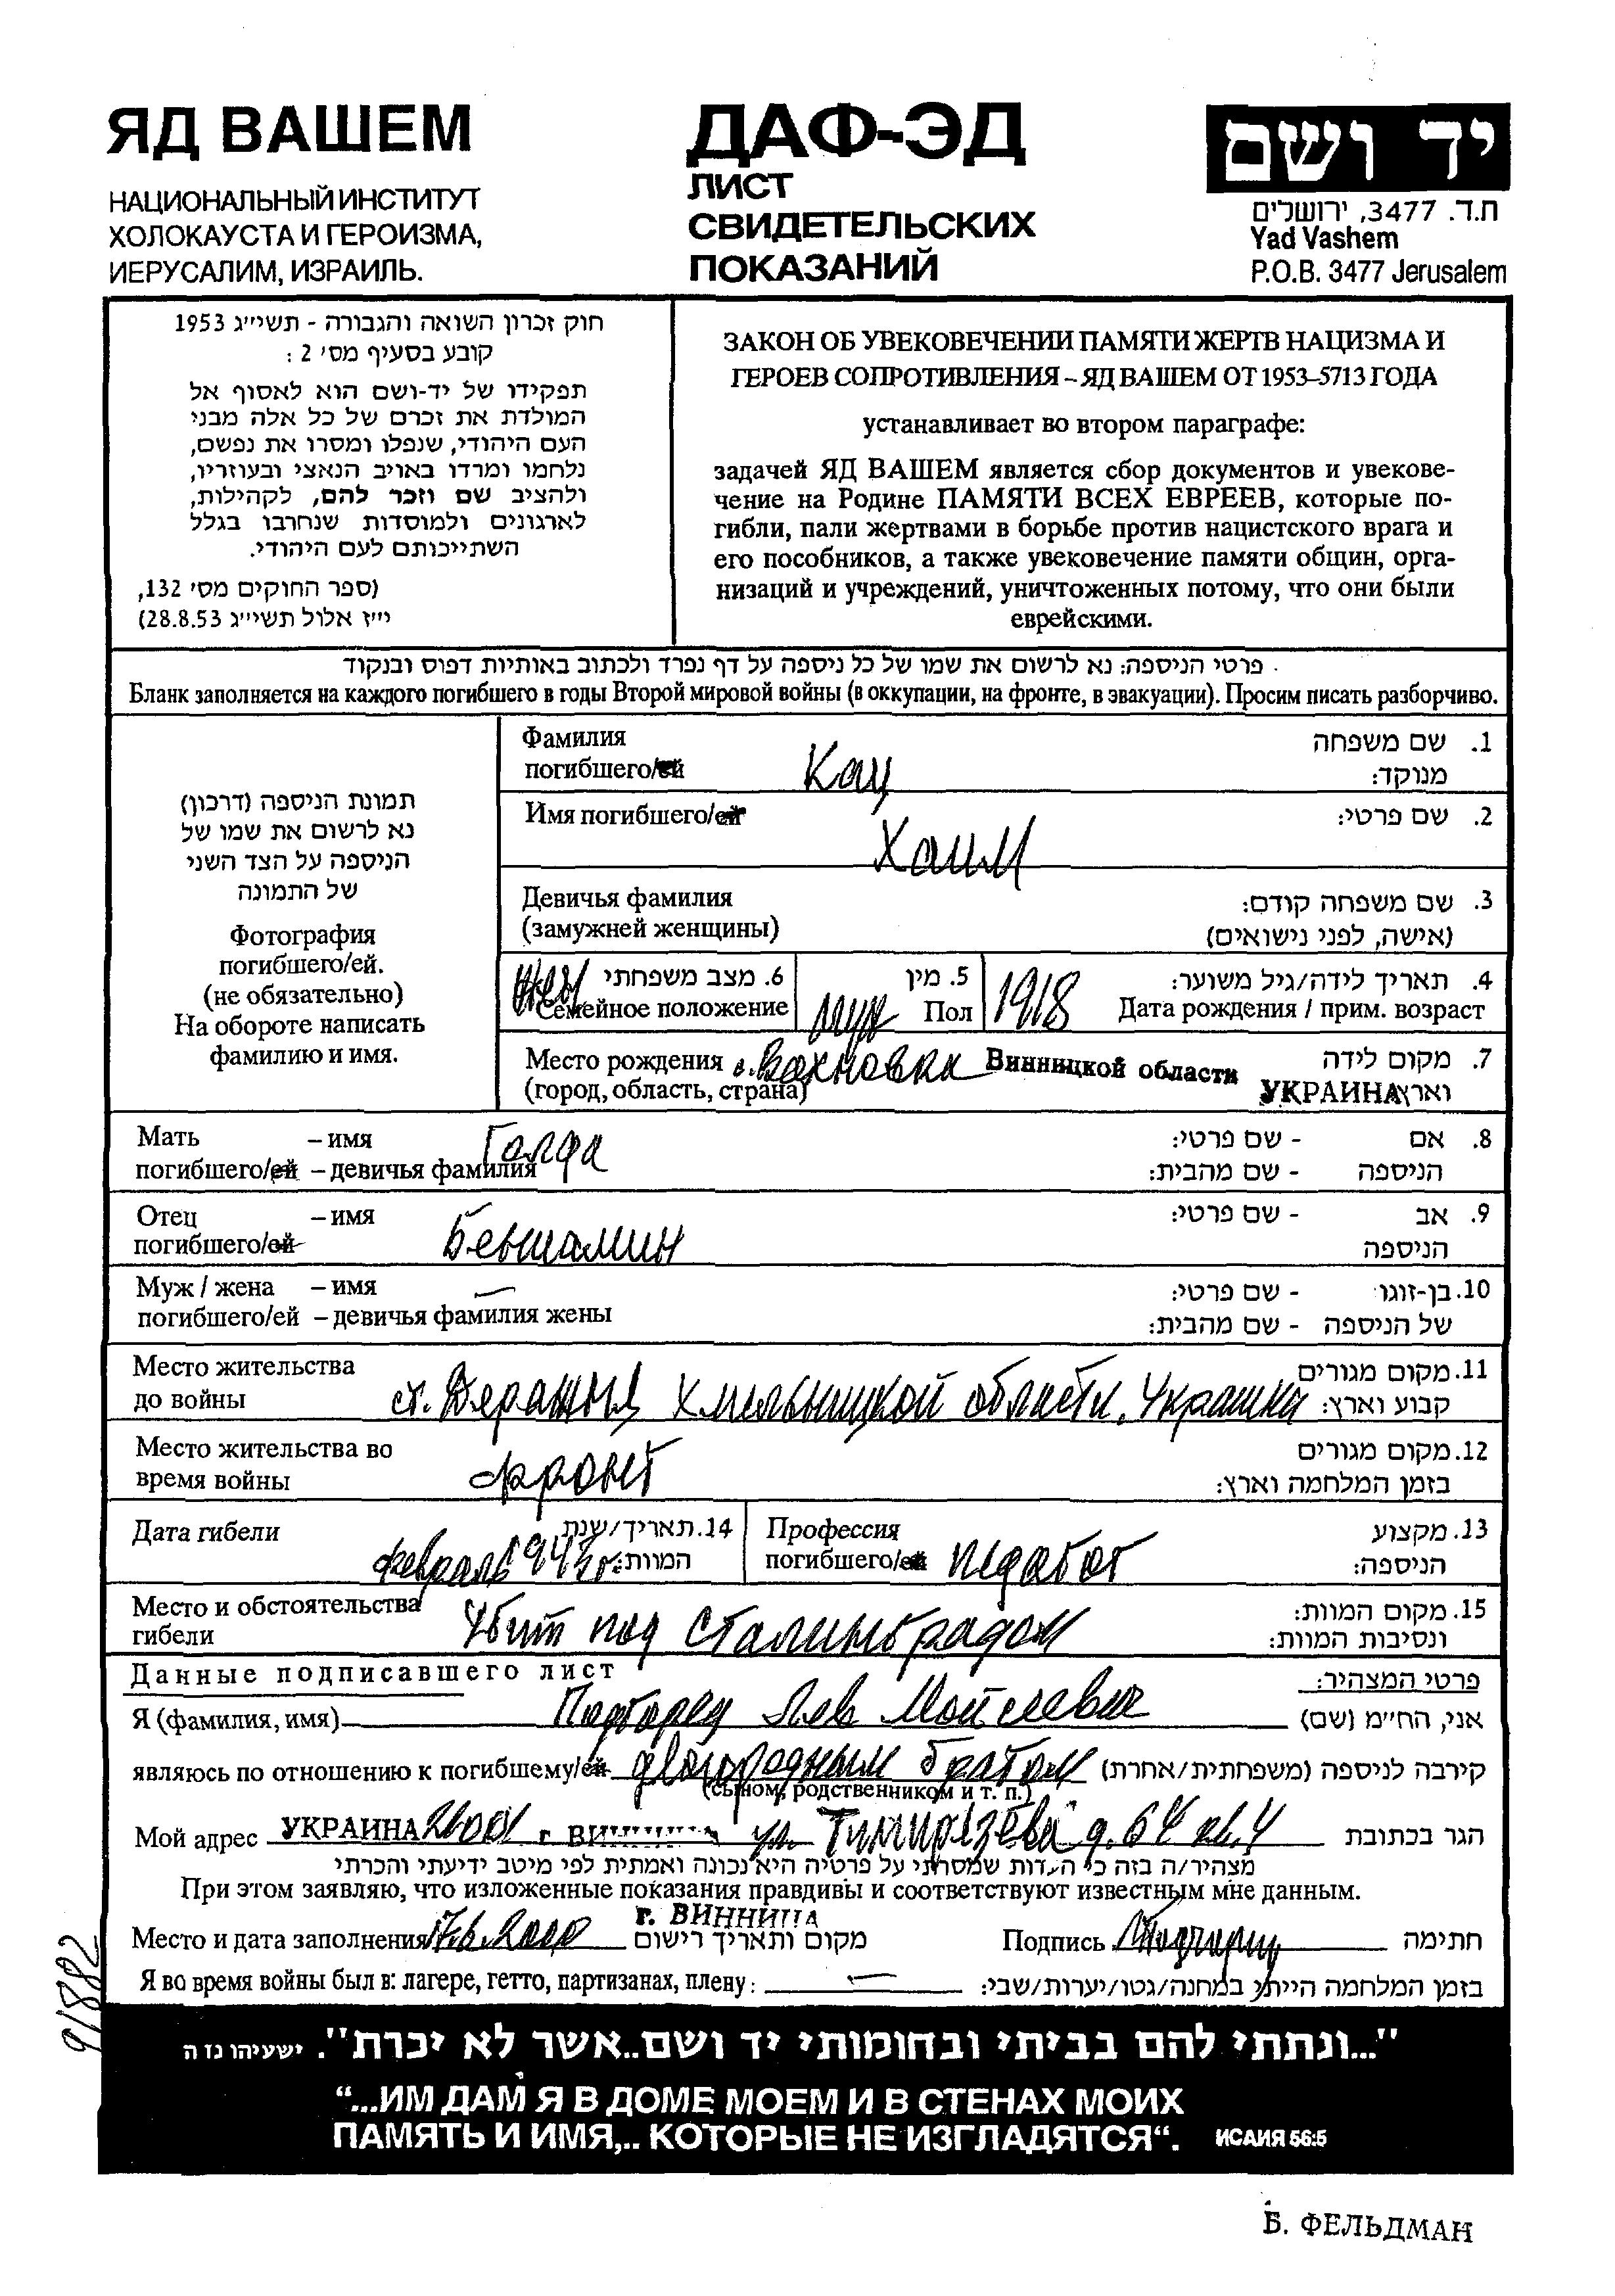 ЯД ВАШЕМ
НАЦИОНАЛЬНЫЙ ИНСТИТУТ
ХОЛОКАУСТА И ГЕРОИЗМА,
ИЕРУСАЛИМ, ИЗРАИЛЬ.
ДАФ-ЭД
ЛИСТ
СВИДЕТЕЛЬСКИХ
ПОКАЗАНИЙ
יד ושם
ת.ד. 3477, ירושלים
Yad Vashem
P.O.B. 3477 Jerusalem
חוק זכרון השואה והגבורה - תשי״ג 1953
קובע בסעיף מס׳ 2 :
תפקידו של יד-ושם הוא לאסוף אל
המולדת את זכרם של כל אלה מבני
העם היהודי, שנפלו ומסרו את נפשם,
נלחמו ומרדו באויב הנאצי ובעוזריו,
ולהציב שם וזכר להם, לקהילות,
לארגונים ולמוסדות שנחרבו בגלל
השתייכותם לעם היהודי.
(ספר החוקים מס׳ 132,
י״ז אלול תשי״ג 28.8.53)
ЗАКОН ОБ УВЕКОВЕЧЕНИИ ПАМЯТИ ЖЕРТВ НАЦИЗМА И
ГЕРОЕВ СОПРОТИВЛЕНИЯ – ЯД ВАШЕМ ОТ 1953–5713 ГОДА
устанавливает во втором параграфе:
задачей ЯД ВАШЕМ является сбор документов и увекове-
чение на Родине ПАМЯТИ ВСЕХ ЕВРЕЕВ, которые по-
гибли, пали жертвами в борьбе против нацистского врага и
его пособников, а также увековечение памяти общин, орга-
низаций и учреждений, уничтоженных потому, что они были
еврейскими.
פרטי הניספה: נא לרשום את שמו של כל ניספה על דף נפרד ולכתוב באותיות דפוס ובנקוד
Бланк заполняется на каждого погибшего в годы Второй мировой войны (в оккупации, на фронте, в эвакуации). Просим писать разборчиво.
תמונת הניספה (דרכון)
נא לרשום את שמו של
הניספה על הצד השני
של התמונה
Фотография
погибшего/ей.
(не обязательно)
На обороте написать
фамилию и имя.
Фамилия
погибшего/ей Кац
1. שם משפחה
מנוקד:
Имя погибшего/ей Хаим
2. שם פרטי:
Девичья фамилия
(замужней женщины)
3. שם משפחה קודם:
(אישה, לפני נישואים)
6. מצב משפחתי
Семейное положение
5. מין
Пол муж
4. תאריך לידה/גיל משוער:
1918 Дата рождения / прим. возраст
Место рождения с. Вахновка Винницкой области
(город, область, страна) УКРАИНА
7. מקום לידה
וארץ
Мать – имя Голда
погибшего/ей – девичья фамилия
8. אם - שם פרטי:
הניספה - שם מהבית:
Отец – имя
погибшего/ей Беньямин
9. אב - שם פרטי:
הניספה
Муж / жена – имя –
погибшего/ей – девичья фамилия жены
10. בן-זוגו - שם פרטי:
של הניספה - שם מהבית:
Место жительства
до войны ст. Деражня Хмельницкой области, Украина
11. מקום מגורים
קבוע וארץ:
Место жительства во
время войны фронт
12. מקום מגורים
בזמן המלחמה וארץ:
Дата гибели
февраль 1943 г.
14. תאריך/שנת
המוות:
Профессия
погибшего/ей педагог
13. מקצוע
הניספה:
Место и обстоятельства
гибели Убит под Сталинградом
15. מקום המוות:
ונסיבות המוות:
Данные подписавшего лист
פרטי המצהיר:
Я (фамилия, имя) Лев Мойсеевич אני, הח״מ (שם)
являюсь по отношению к погибшему/ей двоюродным братом קירבה לניספה (משפחתית/אחרת)
(сыном, родственником и т. п.)
Мой адрес УКРАИНА 21001 г. ВИННИЦА ул. Тимирязева д. 64 кв. 4 הגר בכתובת
מצהיר/ה בזה כי העדות שמסרתי על פרטיה היא נכונה ואמתית לפי מיטב ידיעתי והכרתי
При этом заявляю, что изложенные показания правдивы и соответствуют известным мне данным.
г. ВИННИЦА
Место и дата заполнения 17.6.2000 מקום ותאריך רישום Подпись חתימה
Я во время войны был в: лагере, гетто, партизанах, плену: – בזמן המלחמה הייתי במחנה/גטו/יערות/שבי:
91882
"...ונתתי להם בביתי ובחומותי יד ושם..אשר לא יכרת". ישעיהו נז ה
“...ИМ ДАМ Я В ДОМЕ МОЕМ И В СТЕНАХ МОИХ
ПАМЯТЬ И ИМЯ,.. КОТОРЫЕ НЕ ИЗГЛАДЯТСЯ“. ИСАИЯ 56:5
Б. ФЕЛЬДМАН